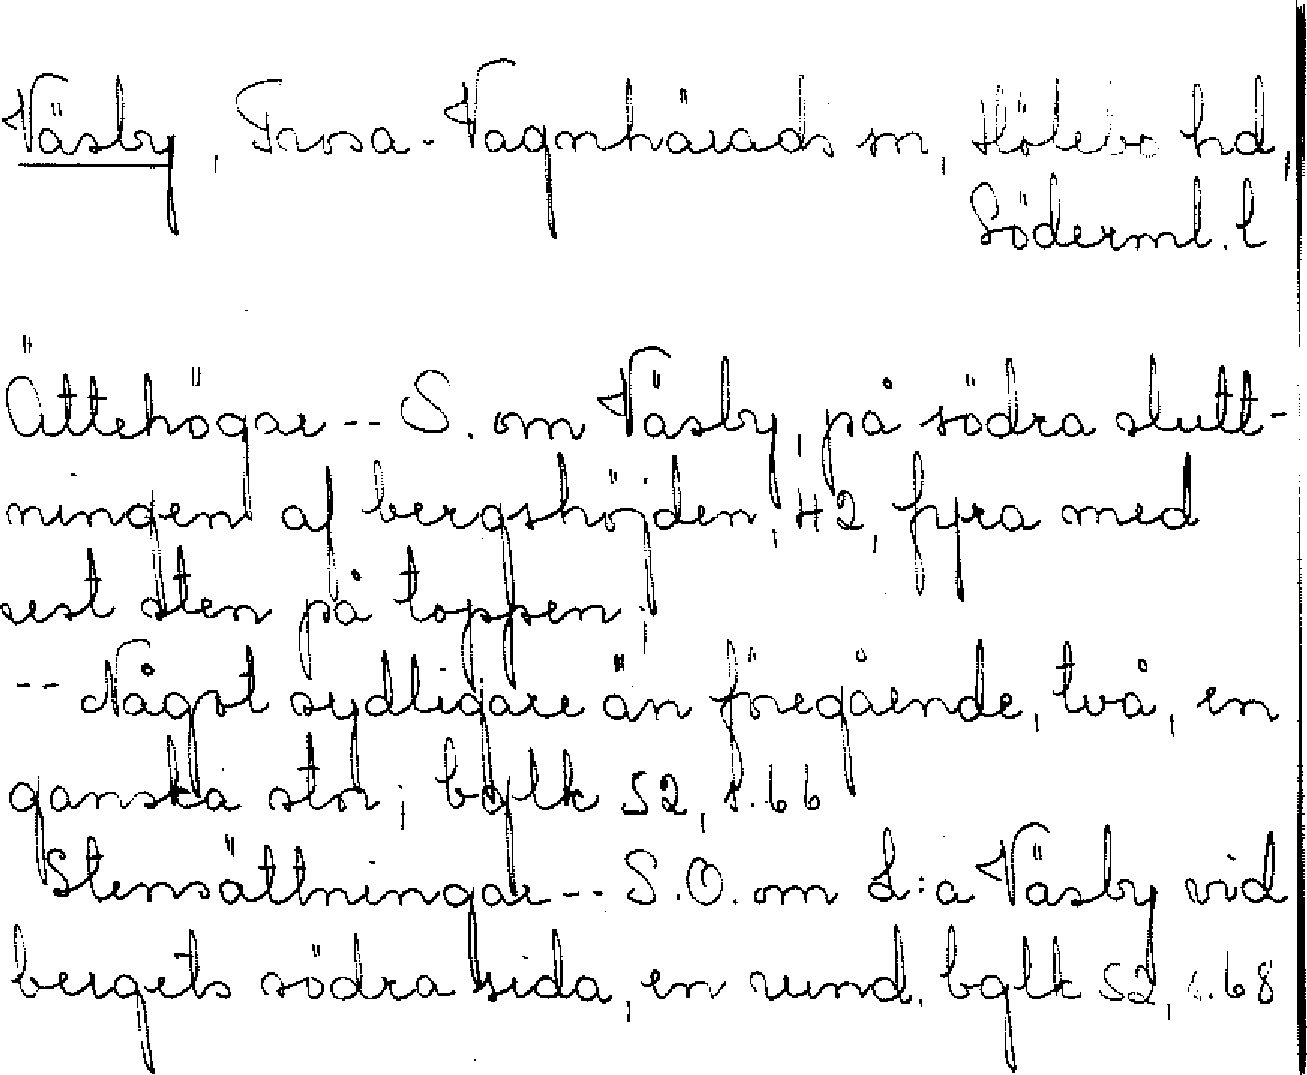 Väsby, Trosa-Vagnhärads sn, Hölebo hd,
Söderml. l
Ättehögar -- S. om Väsby, på södra slutt-
ningen af bergshöjden, 42, fyra med
rest sten på toppen;
-- Något sydligare än föregående, två, en
ganska stor; bglk 52, s. 66
Stensättningar -- S.O. om L:a Väsby vid
bergets södra sida, en rund. bglk 52, s. 68